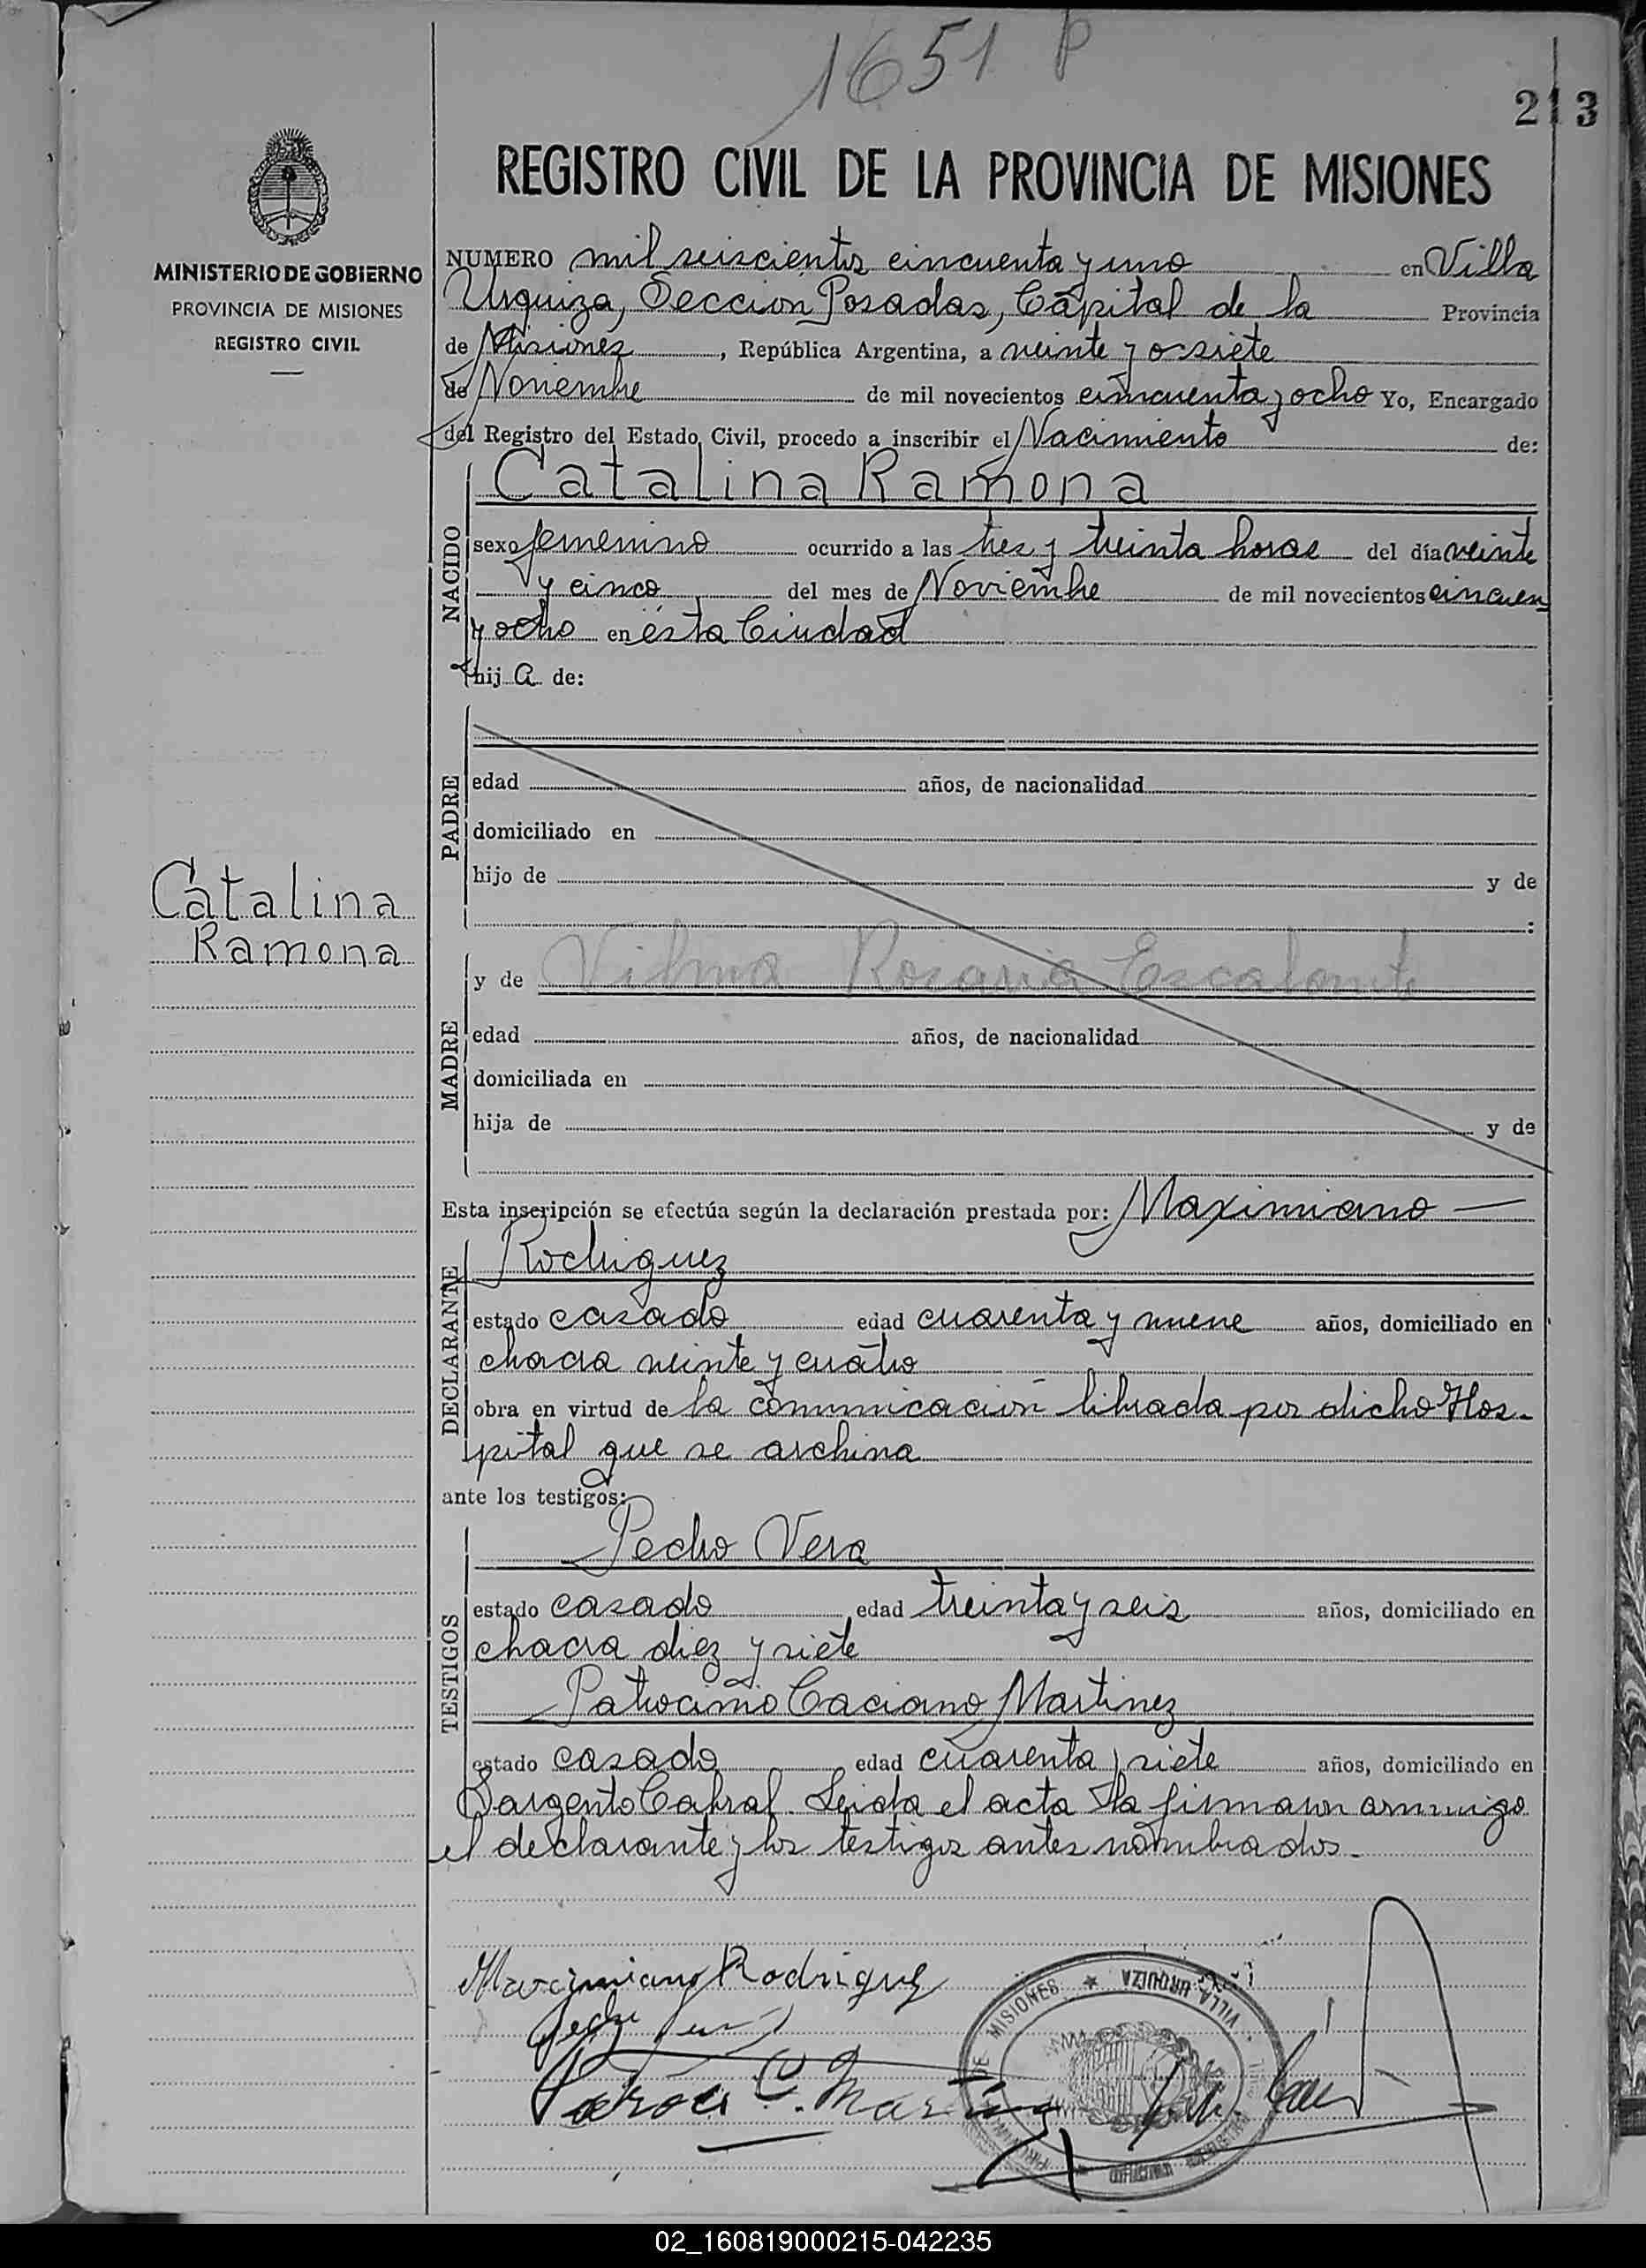 1651 P
213
REGISTRO CIVIL DE LA PROVINCIA DE MISIONES
MINISTERIO DE GOBIERNO
PROVINCIA DE MISIONES
REGISTRO CIVIL
NUMERO mil seiscientos cincuenta y uno en Villa
Urquiza, Sección Posadas, Capital de la Provincia
de Misiones, República Argentina, a veinte y
de Noviembre de mil novecientos cincuenta y ocho Yo, Encargado
del Registro del Estado Civil, procedo a inscribir el Nacimiento de:
Catalina Ramona
NACIDO
sexo femenino ocurrido a las tres y treinta horas del día veinte
y cinco del mes de Noviembre de mil novecientos cincuen
y ocho en ésta Ciudad
hij a de:
PADRE
edad años, de nacionalidad
domiciliado en
hijo de y de
:
Catalina
Ramona
MADRE
y de Vilma Rosaria Escalante
edad años, de nacionalidad
domiciliada en
hija de y de
Esta inscripción se efectúa según la declaración prestada por: Maximiano
Rodriguez
DECLARANTE
estado casado edad cuarenta y nueve años, domiciliado en
chacra veinte y cuatro
obra en virtud de la comunicación librada por dicho Hos-
pital que se archiva
ante los testigos:
TESTIGOS
Pedro Vera
estado casado edad treinta y seis años, domiciliado en
chacra diez y siete
Patrocinio Caciano Martinez
estado casado edad cuarenta y siete años, domiciliado en
Sargento Cabral. Leida el acta la firmaron conmigo
el declarante y los testigos antes nombrados.
Maximiano Rodriguez
Patroci C. Martinez
DE MISIONES ★ VILLA URQUIZA
02_160819000215-042235